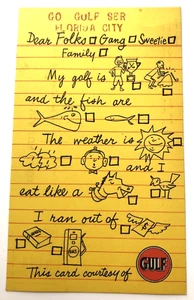 GO GULF SER
FLORIDA CITY
Dear Folks Gang Sweetie
Family
My golf is
and the fish are
The weather is
and I
eat like a
I ran out of
This card courtesy of GULF